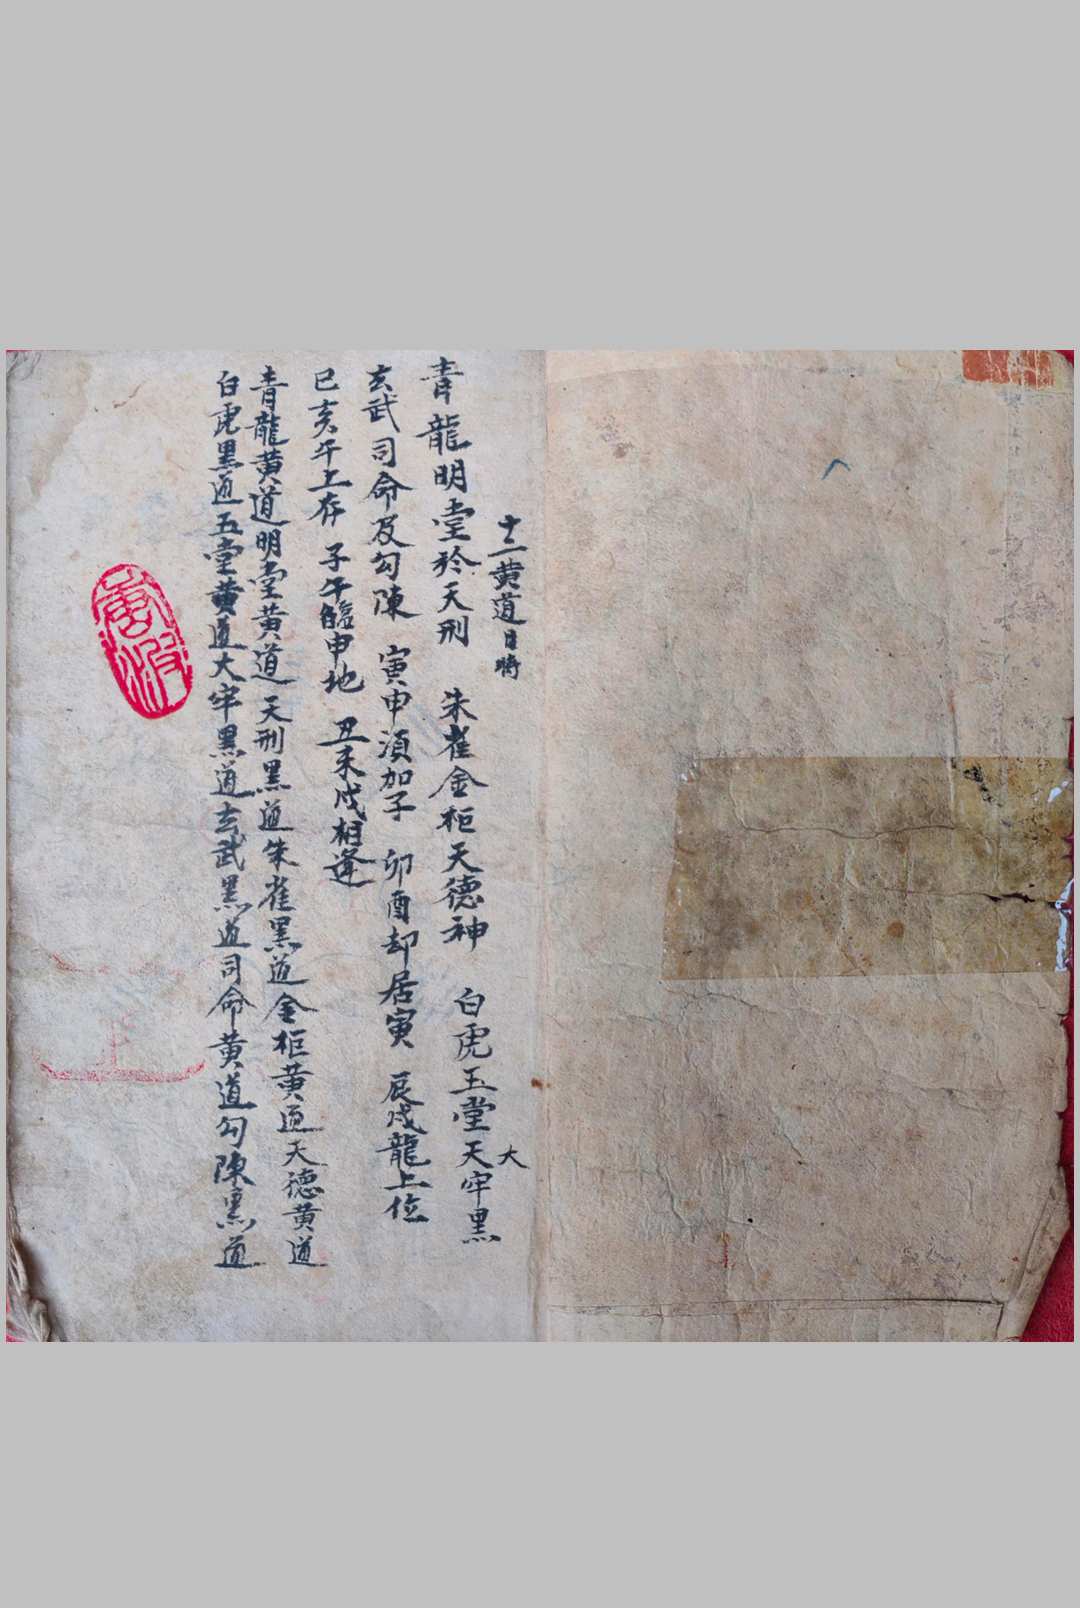 十二黄道日時
青龍明堂於天刑　朱雀金柜天德神　白虎玉堂天牢黑
大
玄武司命及勾陳　寅申湏加子　卯酉却居寅　辰戌龍上位
巳亥午上存　子午臨申地　丑未戌相逢
青龍黄道明堂黄道天刑黑道朱雀黑道金柜黄道天德黄道
白虎黑道五堂黄道大牢黑道玄武黑道司命黄道勾陳黑道